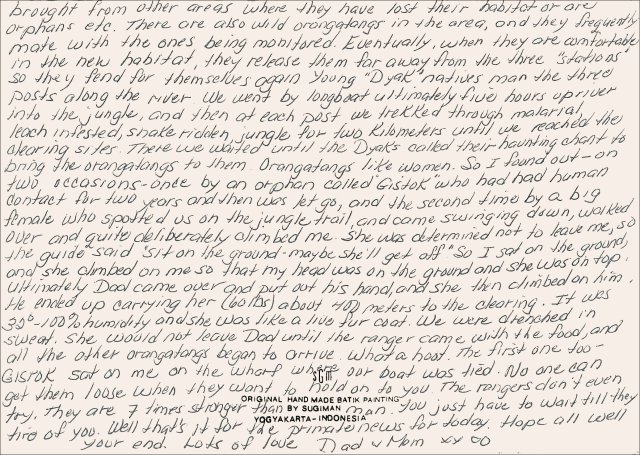 brought from other areas where they have lost their habitat or are
orphans etc. There are also wild orangatangs in the area, and they frequently
mate with the ones being monitored. Eventually, when they are comfortable
in the new habitat, they release them far away from the three "stations"
so they fend for themselves again Young "Dyak" natives man the three
posts along the river. We went by longboat ultimately five hours upriver
into the jungle, and then at each post we trekked through malarial,
leach infested, snake ridden jungle for two kilometers until we reached the
clearing sites. There we waited until the Dyaks called their haunting chant to
bring the orangatangs to them. Orangatangs like women. So I found out - on
two occasions - once by an orphan called "Gistok" who had had human
contact for two years and then was let go, and the second time by a big
female who spotted us on the jungle trail, and came swinging down, walked
over and quite deliberately climbed me. She was determined not to leave me, so
the guide said "sit on the ground - maybe she'll get off" So I sat on the ground,
and she climbed on me so that my head was on the ground and she was on top.
Ultimately Dad came over and put out his hand, and she then climbed on him.
He ended up carrying her (60 lbs) about 400 meters to the clearing. It was
35° - 100% humidity and she was like a live fur coat. We were drenched in
sweat. She would not leave Dad until the ranger came with the food, and
all the other orangatangs began to arrive. What a hoot. The first one too -
Gistok sat on me on the wharf where our boat was tied. No one can
get them loose when they want to hold on to you. The rangers don't even
try. They are 7 times stronger than man. You just have to wait till they
tire of you. Well that's it for the primate news for today. Hope all well
your end. Lots of love Dad & Mom xx oo
ORIGINAL HAND MADE BATIK PAINTING
BY SUGIMAN
YOGYAKARTA - INDONESIA